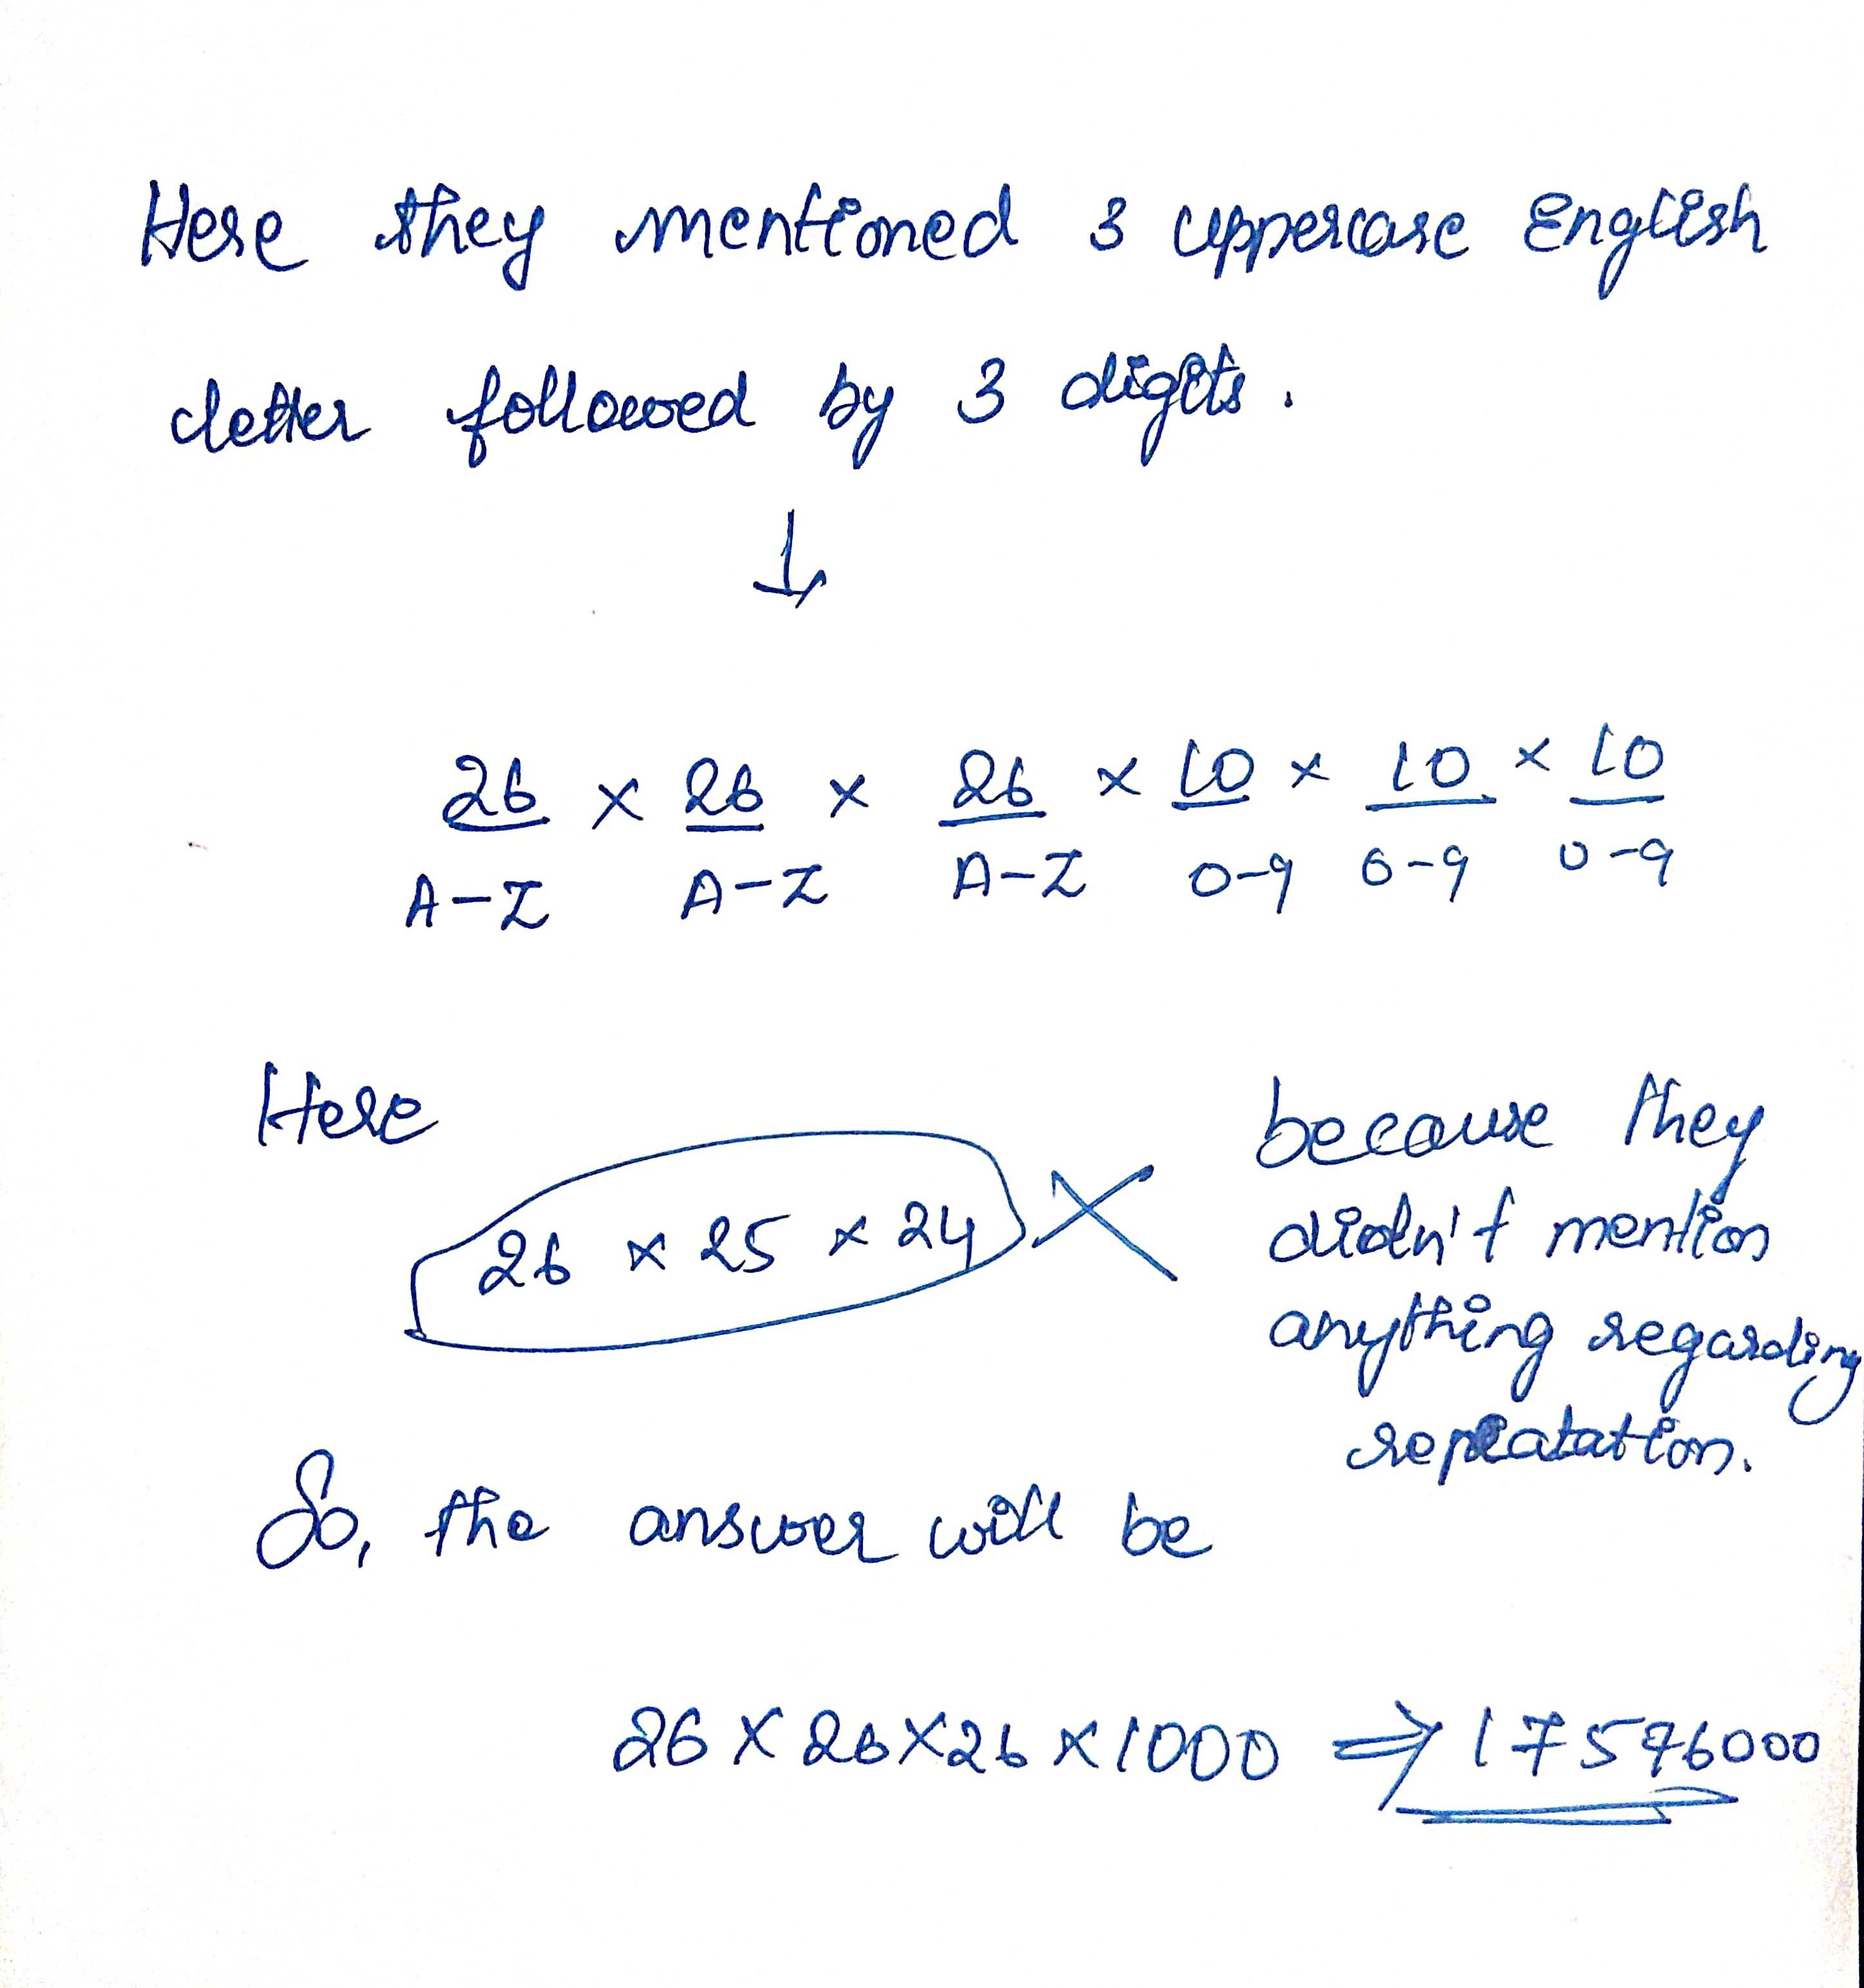 Here they mentioned 3 uppercase English
letter followed by 3 digits.
↓
26 × 26 × 26 × 10 × 10 × 10
A-Z A-Z A-Z 0-9 0-9 0-9
Here
because they
26 × 25 × 24 ×
didn't mention
anything regarding
repeatation.
So, the answer will be
26 × 26 × 26 × 1000 ⇒ 17576000